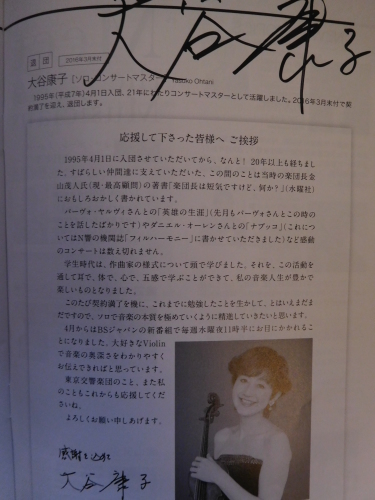 大谷康子
退団 2016年3月末付
大谷康子［ソロ・コンサートマスター］ Yasuko Ohtani
1995年(平成7年)4月1日入団、21年にわたりコンサートマスターとして活躍しました。2016年3月末付で契
約満了を迎え、退団します。
応援して下さった皆様へ ご挨拶
1995年4月1日に入団させていただいてから、なんと！ 20年以上も経ちまし
た。すばらしい仲間達に支えていただいた、この間のことは当時の楽団長金
山茂人氏(現・最高顧問)の著書「楽団長は短気ですけど、何か？」(水曜社)
におもしろおかしく書かれています。
パーヴォ・ヤルヴィさんとの「英雄の生涯」(先月もパーヴォさんとこの時の
ことを話したばかりです)やダニエル・オーレンさんとの「ナブッコ」(これにつ
いてはN響の機関誌「フィルハーモニー」に書かせていただきました)など感動
のコンサートは数え切れません。
学生時代は、作曲家の様式について頭で学びました。それを、この活動を
通して耳で、体で、心で、五感で学ぶことができて、私の音楽人生が豊かで
楽しいものとなりました。
このたび契約満了を機に、これまでに勉強したことを生かして、とはいえまだま
だですので、ソロで音楽の本質を極めていくように精進していきたいと思います。
4月からはBSジャパンの新番組で毎週水曜夜11時半にお目にかかれるこ
とになりました。大好きなViolin
で音楽の奥深さをわかりやすく
お伝えできればと思っています。
東京交響楽団のこと、また私
のこともこれからも応援してくだ
さいね。
よろしくお願い申しあげます。
感謝を込めて
大谷康子